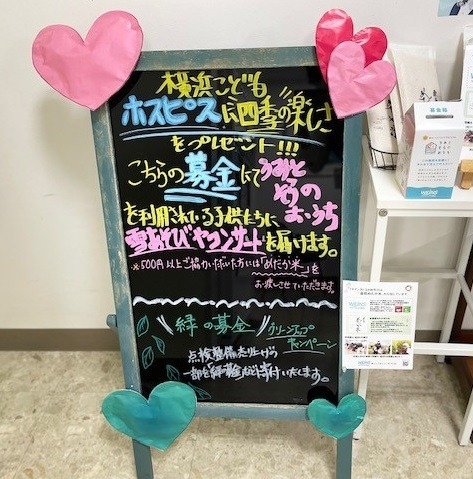 横浜こども
ホスピスに四季の楽しさ
をプレゼント!!!
こちらの募金にてうみと
そらの
おうち
を利用されている子供たちに
雪あそびやコンサートを届けます。
※500円以上ご協力いただいた方には「めだか米」を
お渡しさせていただきます。
緑の募金
グリーンアップ
キャンペーン
点検整備売り上げの
一部を緑の募金などに寄付いたします。
募金箱